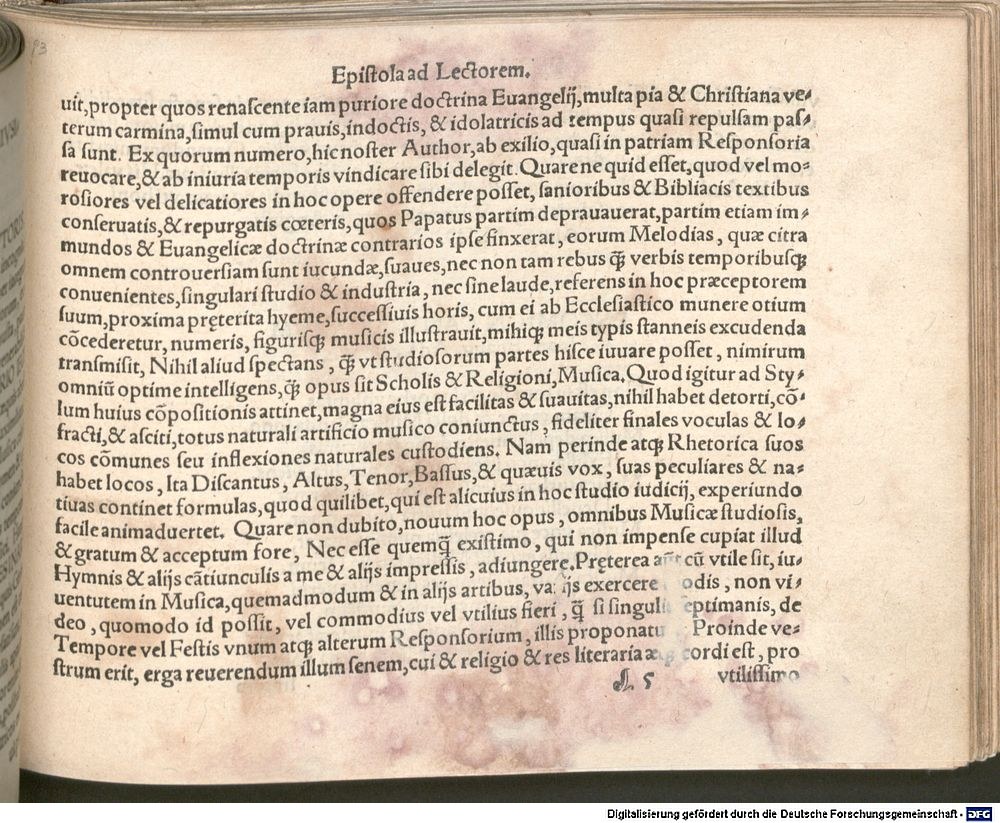 93
Epistola ad Lectorem.
uit, propter quos renascente iam puriore doctrina Euangelij, multa pia & Christiana ve-
terum carmina, simul cum prauis, indoctis, & idolatricis ad tempus quasi repulsam pas-
sa sunt. Ex quorum numero, hic noster Author, ab exilio, quasi in patriam Responsoria
reuocare, & ab iniuria temporis vindicare sibi delegit. Quare ne quid esset, quod vel mo-
rosiores vel delicatiores in hoc opere offendere posset, sanioribus & Bibliacis textibus
conseruatis, & repurgatis cœteris, quos Papatus partim deprauauerat, partim etiam im-
mundos & Euangelicæ doctrinæ contrarios ipse finxerat, eorum Melodias, quæ citra
omnem controuersiam sunt iucundæ, suaues, nec non tam rebus q̃ꝫ verbis temporibusqꝫ
conuenientes, singulari studio & industria, nec sine laude, referens in hoc præceptorem
suum, proxima pręterita hyeme, successiuis horis, cum ei ab Ecclesiastico munere otium
cōcederetur, numeris, figurisqꝫ musicis illustrauit, mihiqꝫ meis typis stanneis excudenda
transmisit, Nihil aliud spectans, q̃ꝫ vt studiosorum partes hisce iuuare posset, nimirum
omniū optime intelligens, q̃ꝫ opus sit Scholis & Religioni, Musica. Quod igitur ad Sty-
lum huius cōpositionis attinet, magna eius est facilitas & suauitas, nihil habet detorti, cō-
fracti, & asciti, totus naturali artificio musico coniunctus, fideliter finales voculas & lo-
cos cōmunes seu inflexiones naturales custodiens. Nam perinde atqꝫ Rhetorica suos
habet locos, Ita Discantus, Altus, Tenor, Bassus, & quæuis vox, suas peculiares & na-
tiuas continet formulas, quod quilibet, qui est alicuius in hoc studio iudicij, experiundo
facile animaduertet. Quare non dubito, nouum hoc opus, omnibus Musicæ studiosis,
& gratum & acceptum fore, Nec esse quemq̃ꝫ existimo, qui non impense cupiat illud
Hymnis & alijs cātiunculis a me & alijs impressis, adiungere. Pręterea cū vtile sit, iu-
uentutem in Musica, quemadmodum & in alijs artibus, exercere modis, non vi-
deo, quomodo id possit, vel commodius vel vtilius fieri, q̃ꝫ si septimanis, de
Tempore vel Festis vnum atqꝫ alterum Responsorium, illis Proinde ve-
strum erit, erga reuerendum illum senem, cui & religio & res literaria cordi est, pro
A 5 vtilissimo
Digitalisierung gefördert durch die Deutsche Forschungsgemeinschaft - DFG